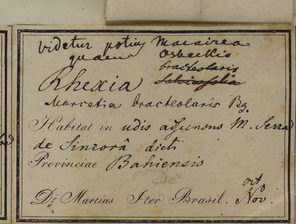 videtur potius Macairea
quam Osbeckia
bracteolaris
Rhexia salviaefolia
Marcetia bracteolaris Bg.
Habitat in udis adscensus M. Serra
de Sincorá dicti
Provinciae Bahiensis
oct.
Dr Martius Iter Brasil. Nov.